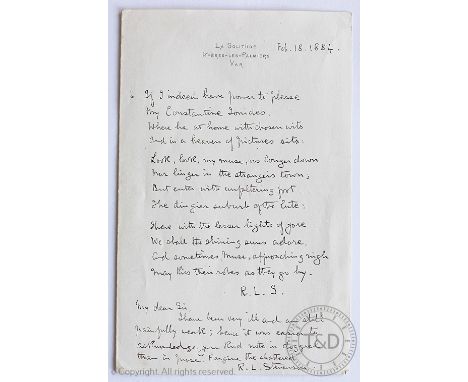 La Solitude
Hyères-les-Palmiers
Var
Feb. 18. 1884.
If I indeed have power to please
My Constantine Ionides,
Where he at home with chosen wits
And in a heaven of pictures sits:
Look, look, my muse, no longer down
Nor linger in the stranger's town;
But enter with unfaltering foot
The dingier suburb of the lute:
There with the lesser lights of yore
We shall the shining ones adore,
And sometimes Muse, approaching nigh
May kiss their robes as they go by.
R. L. S.
My dear Sir
I have been very ill and am still
painfully weak; hence it was easier to
acknowledge your kind note in doggrel
than in prose. Forgive the
R. L. Stevenson
T&D
Copyright. All rights reserved.